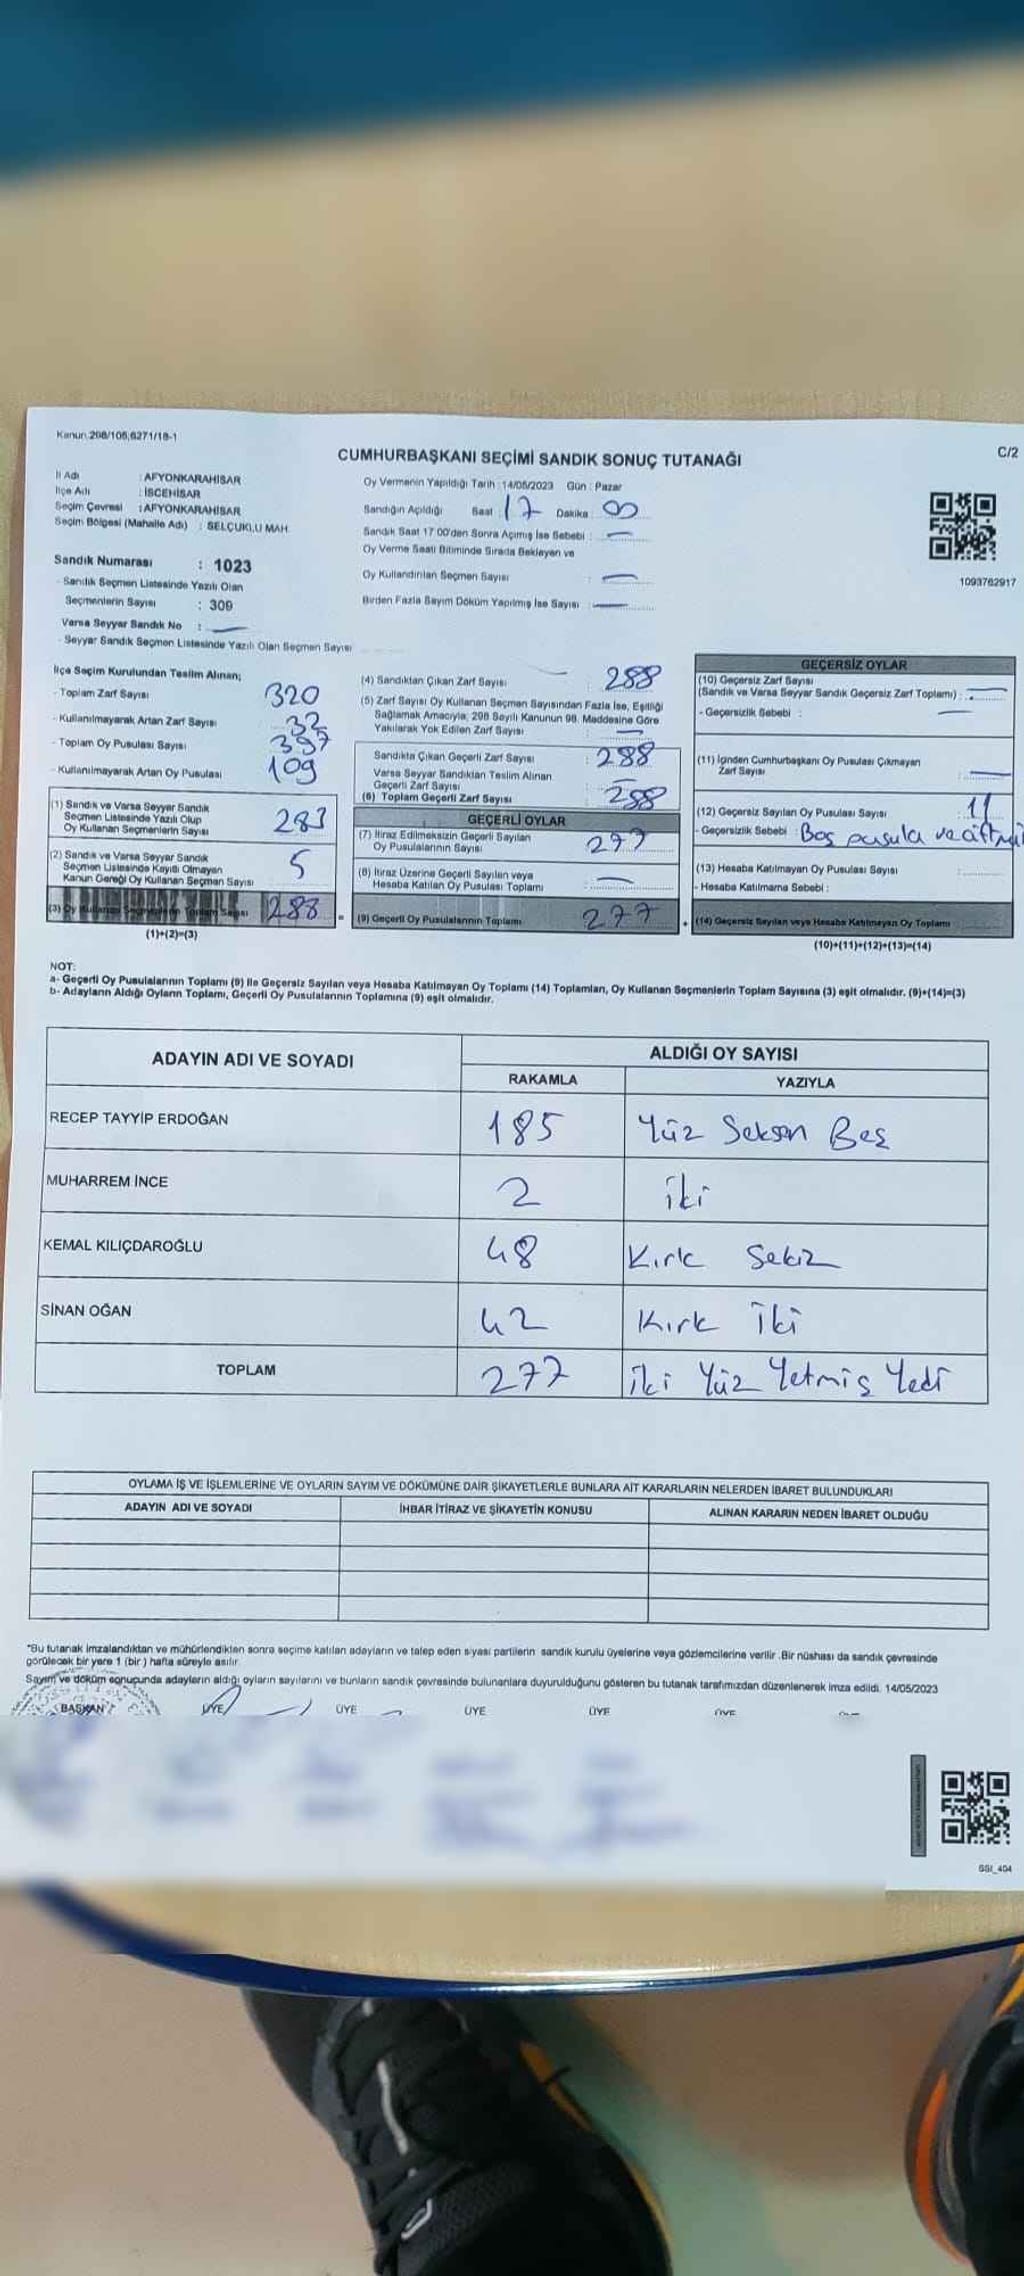 Kanun 298/105,6271/18-1
C/2
CUMHURBAŞKANI SEÇİMİ SANDIK SONUÇ TUTANAĞI
İl Adı : AFYONKARAHİSAR
İlçe Adı : İSCEHİSAR
Seçim Çevresi : AFYONKARAHİSAR
Seçim Bölgesi (Mahalle Adı) : SELÇUKLU MAH.
Sandık Numarası : 1023
- Sandık Seçmen Listesinde Yazılı Olan
Seçmenlerin Sayısı : 309
Varsa Seyyar Sandık No :
- Seyyar Sandık Seçmen Listesinde Yazılı Olan Seçmen Sayısı
Oy Vermenin Yapıldığı Tarih : 14/05/2023 Gün : Pazar
Sandığın Açıldığı Saat : 17 Dakika : 00
Sandık Saat 17:00'den Sonra Açılmış İse Sebebi :
Oy Verme Saati Bitiminde Sırada Bekleyen ve
Oy Kullandırılan Seçmen Sayısı :
Birden Fazla Sayım Döküm Yapılmış İse Sayısı :
1093762917
İlçe Seçim Kurulundan Teslim Alınan;
- Toplam Zarf Sayısı 320
- Kullanılmayarak Artan Zarf Sayısı 32
- Toplam Oy Pusulası Sayısı 397
- Kullanılmayarak Artan Oy Pusulası 109
(1) Sandık ve Varsa Seyyar Sandık
Seçmen Listesinde Yazılı Olup
Oy Kullanan Seçmenlerin Sayısı 283
(2) Sandık ve Varsa Seyyar Sandık
Seçmen Listesinde Kayıtlı Olmayan
Kanun Gereği Oy Kullanan Seçmen Sayısı 5
(3) Oy Kullanan Seçmenlerin Toplam Sayısı 288
(1)+(2)=(3)
(4) Sandıktan Çıkan Zarf Sayısı : 288
(5) Zarf Sayısı Oy Kullanan Seçmen Sayısından Fazla İse, Eşitliği
Sağlamak Amacıyla, 298 Sayılı Kanunun 98. Maddesine Göre
Yakılarak Yok Edilen Zarf Sayısı :
Sandıkta Çıkan Geçerli Zarf Sayısı : 288
Varsa Seyyar Sandıktan Teslim Alınan
Geçerli Zarf Sayısı :
(6) Toplam Geçerli Zarf Sayısı : 288
GEÇERLİ OYLAR
(7) İtiraz Edilmeksizin Geçerli Sayılan
Oy Pusulalarının Sayısı : 277
(8) İtiraz Üzerine Geçerli Sayılan veya
Hesaba Katılan Oy Pusulası Toplamı :
(9) Geçerli Oy Pusulalarının Toplamı 277
GEÇERSİZ OYLAR
(10) Geçersiz Zarf Sayısı
(Sandık ve Varsa Seyyar Sandık Geçersiz Zarf Toplamı) :
- Geçersizlik Sebebi :
(11) İçinden Cumhurbaşkanı Oy Pusulası Çıkmayan
Zarf Sayısı :
(12) Geçersiz Sayılan Oy Pusulası Sayısı : 11
- Geçersizlik Sebebi : Boş pusula ve
(13) Hesaba Katılmayan Oy Pusulası Sayısı :
- Hesaba Katılmama Sebebi :
(14) Geçersiz Sayılan veya Hesaba Katılmayan Oy Toplamı
(10)+(11)+(12)+(13)=(14)
NOT:
a- Geçerli Oy Pusulalarının Toplamı (9) İle Geçersiz Sayılan veya Hesaba Katılmayan Oy Toplamı (14) Toplamları, Oy Kullanan Seçmenlerin Toplam Sayısına (3) eşit olmalıdır. (9)+(14)=(3)
b- Adayların Aldığı Oyların Toplamı, Geçerli Oy Pusulalarının Toplamına (9) eşit olmalıdır.
ADAYIN ADI VE SOYADI ALDIĞI OY SAYISI
RAKAMLA YAZIYLA
RECEP TAYYİP ERDOĞAN 185 Yüz Seksen Beş
MUHARREM İNCE 2 İki
KEMAL KILIÇDAROĞLU 48 Kırk Sekiz
SİNAN OĞAN 42 Kırk İki
TOPLAM 277 İki Yüz Yetmiş Yedi
OYLAMA İŞ VE İŞLEMLERİNE VE OYLARIN SAYIM VE DÖKÜMÜNE DAİR ŞİKAYETLERLE BUNLARA AİT KARARLARIN NELERDEN İBARET BULUNDUKLARI
ADAYIN ADI VE SOYADI İHBAR İTİRAZ VE ŞİKAYETİN KONUSU ALINAN KARARIN NEDEN İBARET OLDUĞU
*Bu tutanak imzalandıktan ve mühürlendikten sonra seçime katılan adayların ve talep eden siyasi partilerin sandık kurulu üyelerine veya gözlemcilerine verilir .Bir nüshası da sandık çevresinde
görülecek bir yere 1 (bir ) hafta süreyle asılır.
Sayım ve döküm sonucunda adayların aldığı oyların sayılarını ve bunların sandık çevresinde bulunanlara duyurulduğunu gösteren bu tutanak tarafımızdan düzenlenerek imza edildi. 14/05/2023
BAŞKAN ÜYE ÜYE ÜYE ÜYE ÜYE
SSI_404